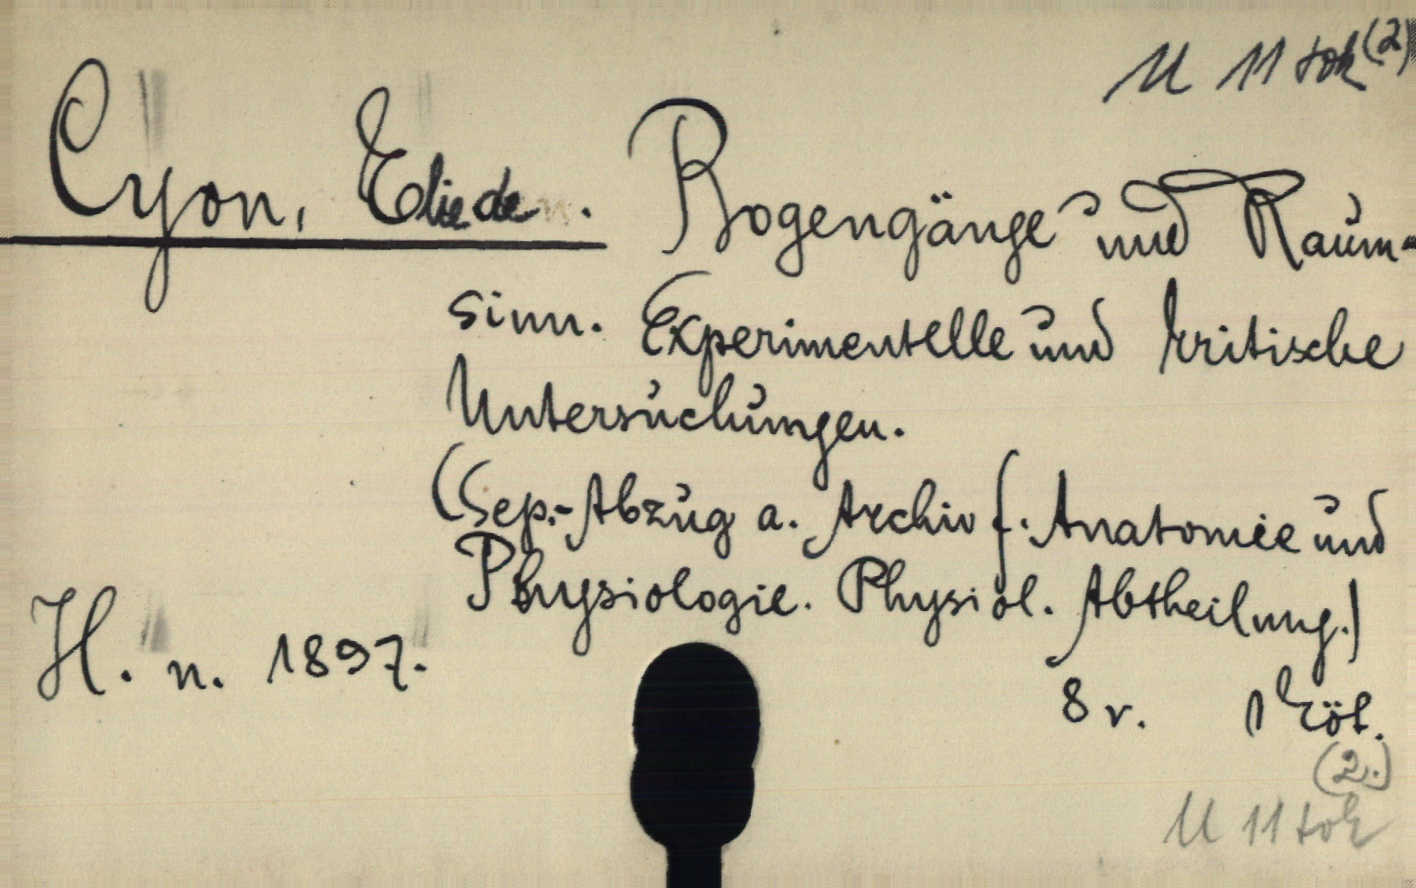 U 11 tok (2)
Cyon, Elie de. Bogengänge und Raum-
sinn. Experimentelle und kritische
Untersuchungen.
(Sep.-Abzug a. Archiv f. Anatomie und
Physiologie. Physiol. Abtheilung.)
H. n. 1897.
8 r. 1 köt.
(2.)
U 11 tok